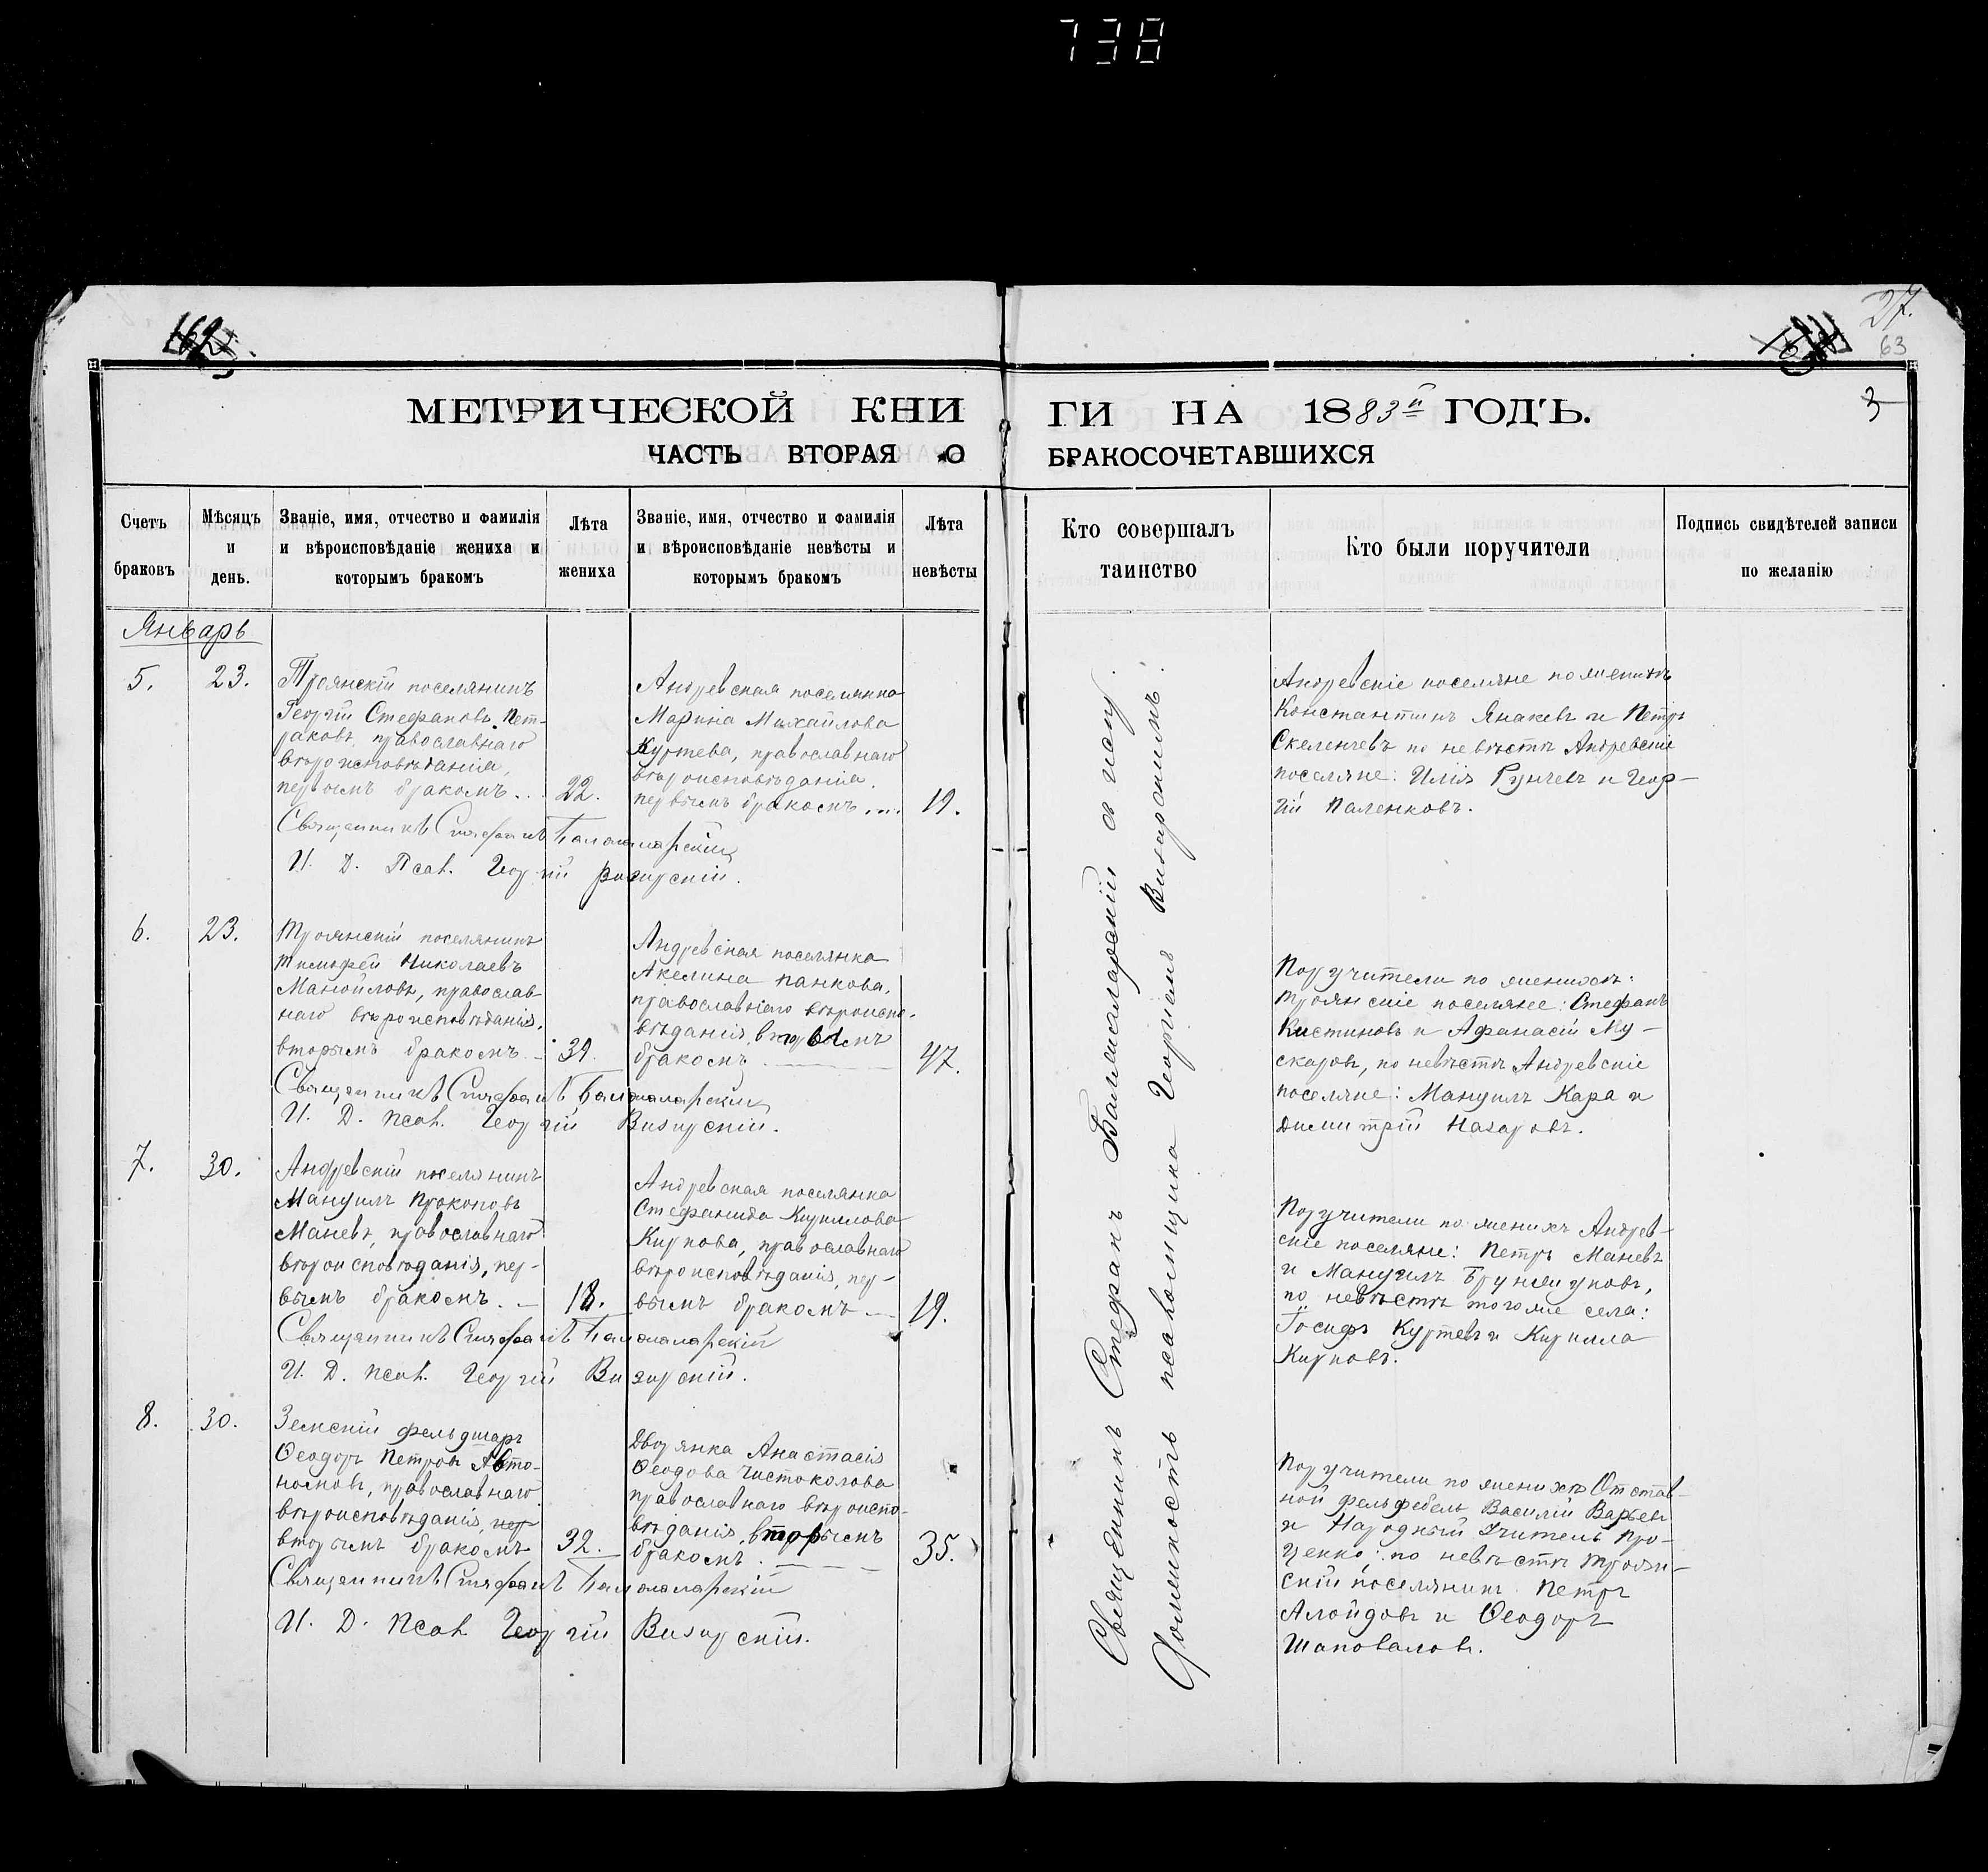 738
27.
63
3
МЕТРИЧЕСКОЙ КНИ
ГИ НА 1883й ГОДЪ.
ЧАСТЬ ВТОРАЯ О
БРАКОСОЧЕТАВШИХСЯ
Счетъ браковъ
Мѣсяцъ и день.
Званіе, имя, отчество и фамилія и вѣроисповѣданіе жениха и которымъ бракомъ
Лѣта жениха
Званіе, имя, отчество и фамилія и вѣроисповѣданіе невѣсты и которымъ бракомъ
Лѣта невѣсты
Кто совершалъ таинство
Кто были поручители
Подпись свидѣтелей записи по желанію
Январь
5.
23.
Троянскій поселянинъ
Георгій Стефановъ Пет-
раковъ, православнаго
вѣроисповѣданія,
первымъ бракомъ.
22.
Андревская поселянка
Марина Михайлова
Куртева, православнаго
вѣроисповѣданія.
первымъ бракомъ...
19.
Священникъ Стефанъ
И. Д. Псал. Георгій Визирскій.
Андревскіе поселяне по женихѣ
Константинъ Янакевъ и Петръ
Скеленчевъ по невѣстѣ Андревскіе
поселяне: Илія Гунчевъ и Геор-
гій Паленковъ.
6.
23.
Троянскій поселянинъ
Тимофей Николаевъ
Манойловъ, православ-
наго вѣроисповѣданія,
вторымъ бракомъ.
39.
Андревская поселянка
Акелина Панкова,
православнаго вѣроиспо-
вѣданія, вторымъ
бракомъ.
47.
Священникъ Стефанъ
И. Д. Псал. Георгій Визирскій.
Поручители по женихѣ:
Троянскіе поселяне: Стефанъ
Кистиновъ и Афанасій Му-
скаровъ, по невѣстѣ Андревскіе
поселяне: Мануилъ Кара и
Димитрій Назаровъ.
7.
30.
Андревскій поселянинъ
Мануилъ Прокоповъ
Маневъ, православнаго
вѣроисповѣданія, пер-
вымъ бракомъ. —
18.
Андревская поселянка
Стефанида Кириллова
Кирнова, православнаго
вѣроисповѣданія, пер-
вымъ бракомъ —
19.
Священникъ Стефанъ
И. Д. Псал. Георгій Визирскій.
Поручители по женихѣ Андрев-
скіе поселяне: Петръ Маневъ
и Мануилъ
по невѣстѣ того же села:
Іосифъ Куртевъ и Кирилла
Кирновъ.
8.
30.
Земскій фельдшаръ
Ѳеодоръ Петровъ Авто-
номовъ, православнаго
вѣроисповѣданія, пер-
вторымъ бракомъ
32.
Дворянка Анастасія
Ѳеодова Чистоколова
православнаго вѣроиспо-
вѣданія, вторымъ
бракомъ.
35.
Священникъ Стефанъ
И. Д. Псал. Георгій Визирскій.
Поручители по женихѣ Отстав-
ной фельфебель Василій
и Народный Учитель Про-
ценко; по невѣстѣ Троян-
скій поселянинъ Петръ
и Ѳеодоръ
Шаповаловъ.
Священникъ Стефанъ
псаломщика Георгіемъ Визирскимъ.